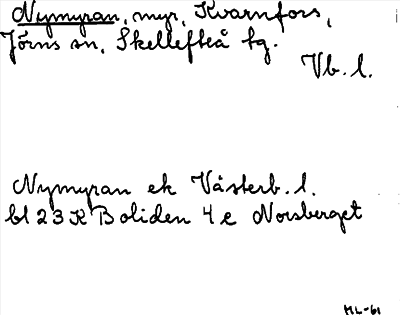 Nymyran, myr, Kvarnfors,
Jörns sn, Skellefteå tg.
Vb. l.
Nymyran ek Västerb. l.
bl 23 K Boliden 4 e Norsberget
ML-61